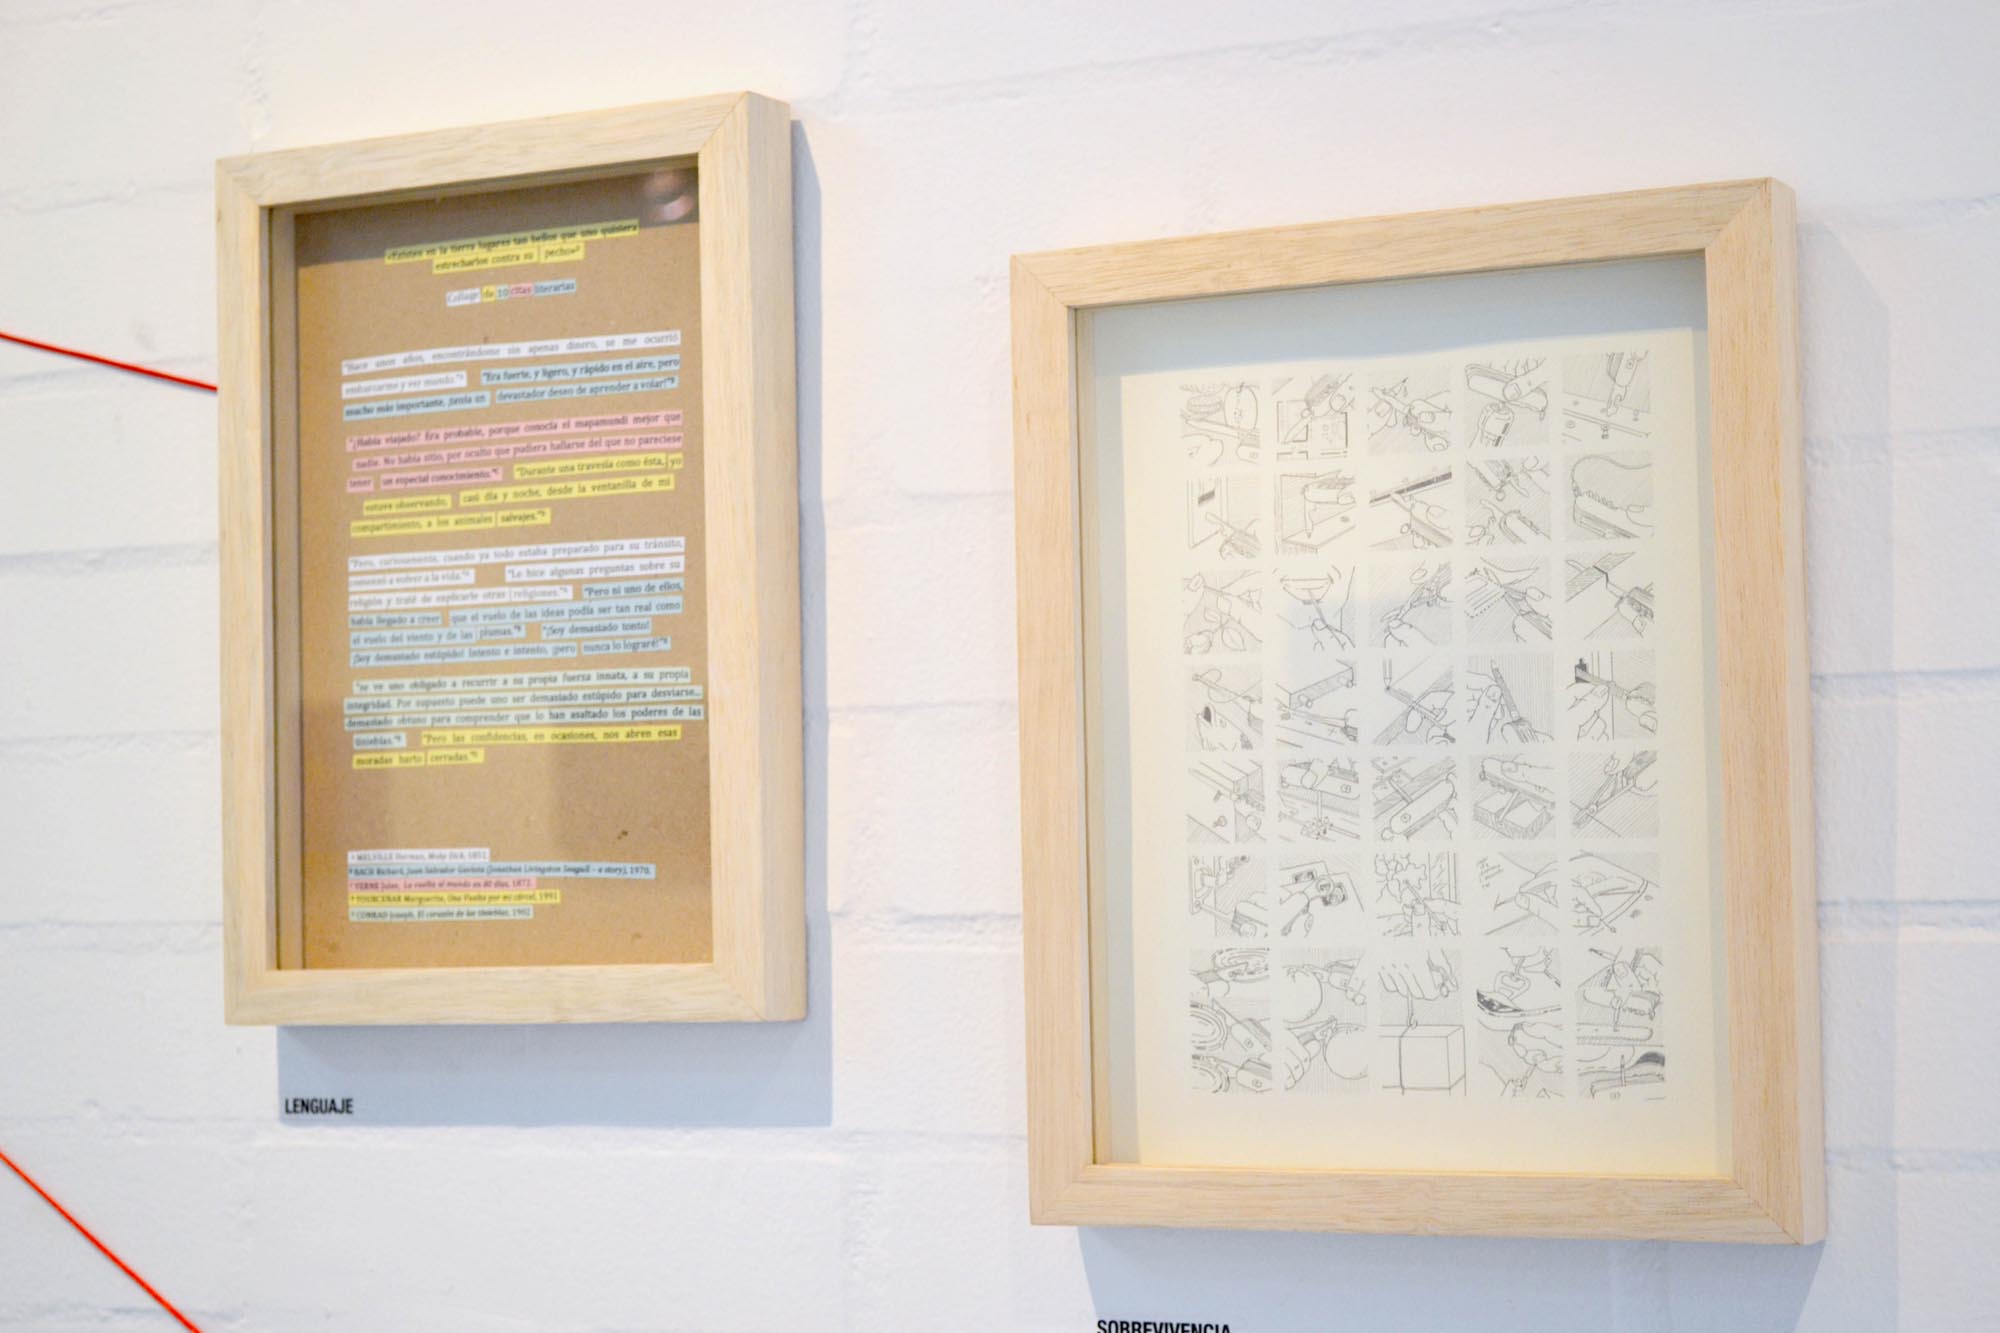 «Existen en la tierra lugares tan bellos que uno quisiera
estrecharlos contra su pecho»
Collage de 10 citas literarias
"Hace unos años, encontrándome sin apenas dinero, se me ocurrió
embarcarme y ver mundo." "Era fuerte, y ligero, y rápido en el aire, pero
mucho más importante, ¡tenía un devastador deseo de aprender a volar!"
"¿Había viajado? Era probable, porque conocía el mapamundi mejor que
nadie. No había sitio, por oculto que pudiera hallarse del que no pareciese
tener un especial conocimiento." "Durante una travesía como ésta, yo
estuve observando, casi día y noche, desde la ventanilla de mi
compartimiento, a los animales salvajes."
"Pero, curiosamente, cuando ya todo estaba preparado para su tránsito,
comenzó a volver a la vida." "Le hice algunas preguntas sobre su
religión y traté de explicarle otras religiones." "Pero ni uno de ellos,
había llegado a creer que el vuelo de las ideas podía ser tan real como
el vuelo del viento y de las plumas." "¡Soy demasiado tonto!
¡Soy demasiado estúpido! Intento e intento, ¡pero nunca lo lograré!"
"se ve uno obligado a recurrir a su propia fuerza innata, a su propia
integridad. Por supuesto puede uno ser demasiado estúpido para desviarse...
demasiado obtuso para comprender que lo han asaltado los poderes de las
tinieblas." "Pero las confidencias, en ocasiones, nos abren esas
moradas harto cerradas."
MELVILLE Herman, Moby Dick, 1851.
BACH Richard, Juan Salvador Gaviota (Jonathan Livingston Seagull - a story), 1970.
VERNE Jules, La vuelta al mundo en 80 días, 1872.
YOURCENAR Marguerite, Una Vuelta por mi cárcel, 1991
CONRAD Joseph, El corazón de las tinieblas, 1902
LENGUAJE
SOBREVIVENCIA